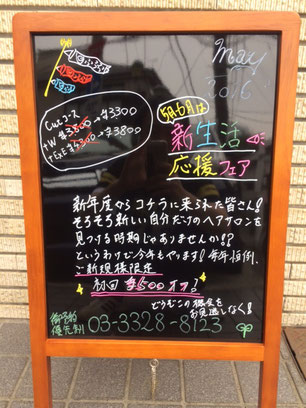 May
2016
Cutコース
+W ¥3800→¥3300
→¥3800
5月6月は
新生活
応援フェア
新年度からコチラに来られた皆さん!
そろそろ新しい自分だけのヘアサロンを
見つける時期じゃありませんか!?
というわけで今年もやります!毎年恒例、
ご新規様限定
初回 ¥500オフ!
どうぞこの機会を
お見逃しなく!
御予約
優先制
03-3328-8123